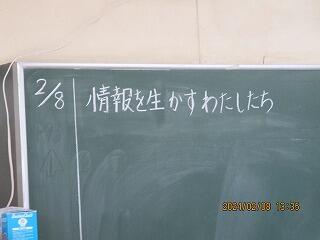 2/8
情報を生かすわたしたち
2021/02/08 13:35